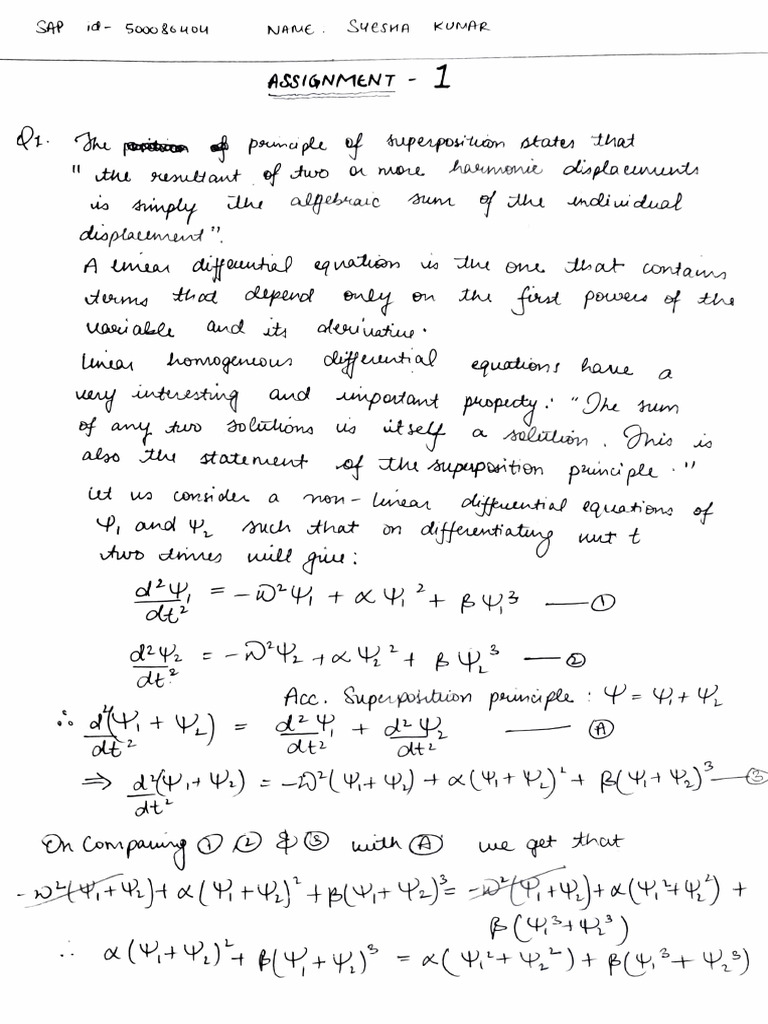 SAP id- 500086404 NAME. SYESHA KUMAR
ASSIGNMENT - 1
Q1. The principle of superposition states that
" the resultant of two or more harmonic displacements
is simply the algebraic sum of the individual
displacement".
A linear differential equation is the one that contains
terms that depend only on the first powers of the
variable and its derivative.
Linear homogeneous differential equations have a
very interesting and important property: "The sum
of any two solutions is itself a solution. This is
also the statement of the superposition principle."
Let us consider a non-linear differential equations of
Ψ₁ and Ψ₂ such that on differentiating wrt t
two times will give:
d²Ψ₁/dt² = -ω²Ψ₁ + αΨ₁² + βΨ₁³ — ①
d²Ψ₂/dt² = -ω²Ψ₂ + αΨ₂² + βΨ₂³ — ②
Acc. Superposition principle : Ψ = Ψ₁ + Ψ₂
∴ d²(Ψ₁ + Ψ₂)/dt² = d²Ψ₁/dt² + d²Ψ₂/dt² — Ⓐ
⇒ d²(Ψ₁ + Ψ₂)/dt² = -ω²(Ψ₁ + Ψ₂) + α(Ψ₁ + Ψ₂)² + β(Ψ₁ + Ψ₂)³ — ③
On Comparing ① ② & ③ with Ⓐ we get that
-ω²(Ψ₁ + Ψ₂) + α(Ψ₁ + Ψ₂)² + β(Ψ₁ + Ψ₂)³ = -ω²(Ψ₁ + Ψ₂) + α(Ψ₁² + Ψ₂²) +
β(Ψ₁³ + Ψ₂³)
∴ α(Ψ₁ + Ψ₂)² + β(Ψ₁ + Ψ₂)³ = α(Ψ₁² + Ψ₂²) + β(Ψ₁³ + Ψ₂³)